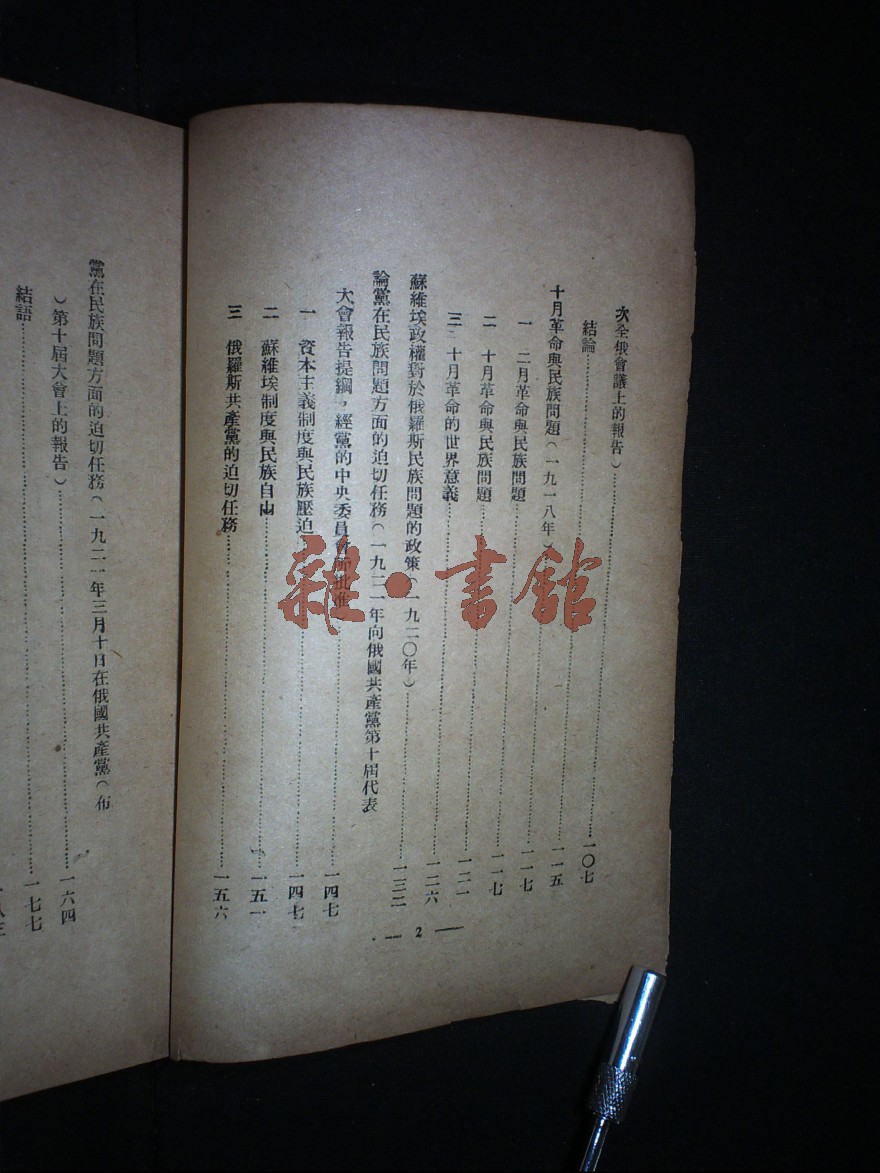 次全俄會議上的報告)……一〇七
結論……一一五
十月革命與民族問題(一九一八年)……一一七
一 二月革命與民族問題……一一七
二 十月革命與民族問題……一二一
三 十月革命的世界意義……一二六
蘇維埃政權對於俄羅斯民族問題的政策(一九二〇年)……一三二
論黨在民族問題方面的迫切任務(一九二一年向俄國共產黨第十屆代表
大會報告提綱,經黨的中央委員會所批准……一四七
一 資本主義制度與民族壓迫……一四七
二 蘇維埃制度與民族自由……一五一
三 俄羅斯共產黨的迫切任務……一五六
— 2 —
黨在民族問題方面的迫切任務(一九二一年三月十日在俄國共產黨(布
)第十屆大會上的報告)……一六四
結語……一七七
雜·書館